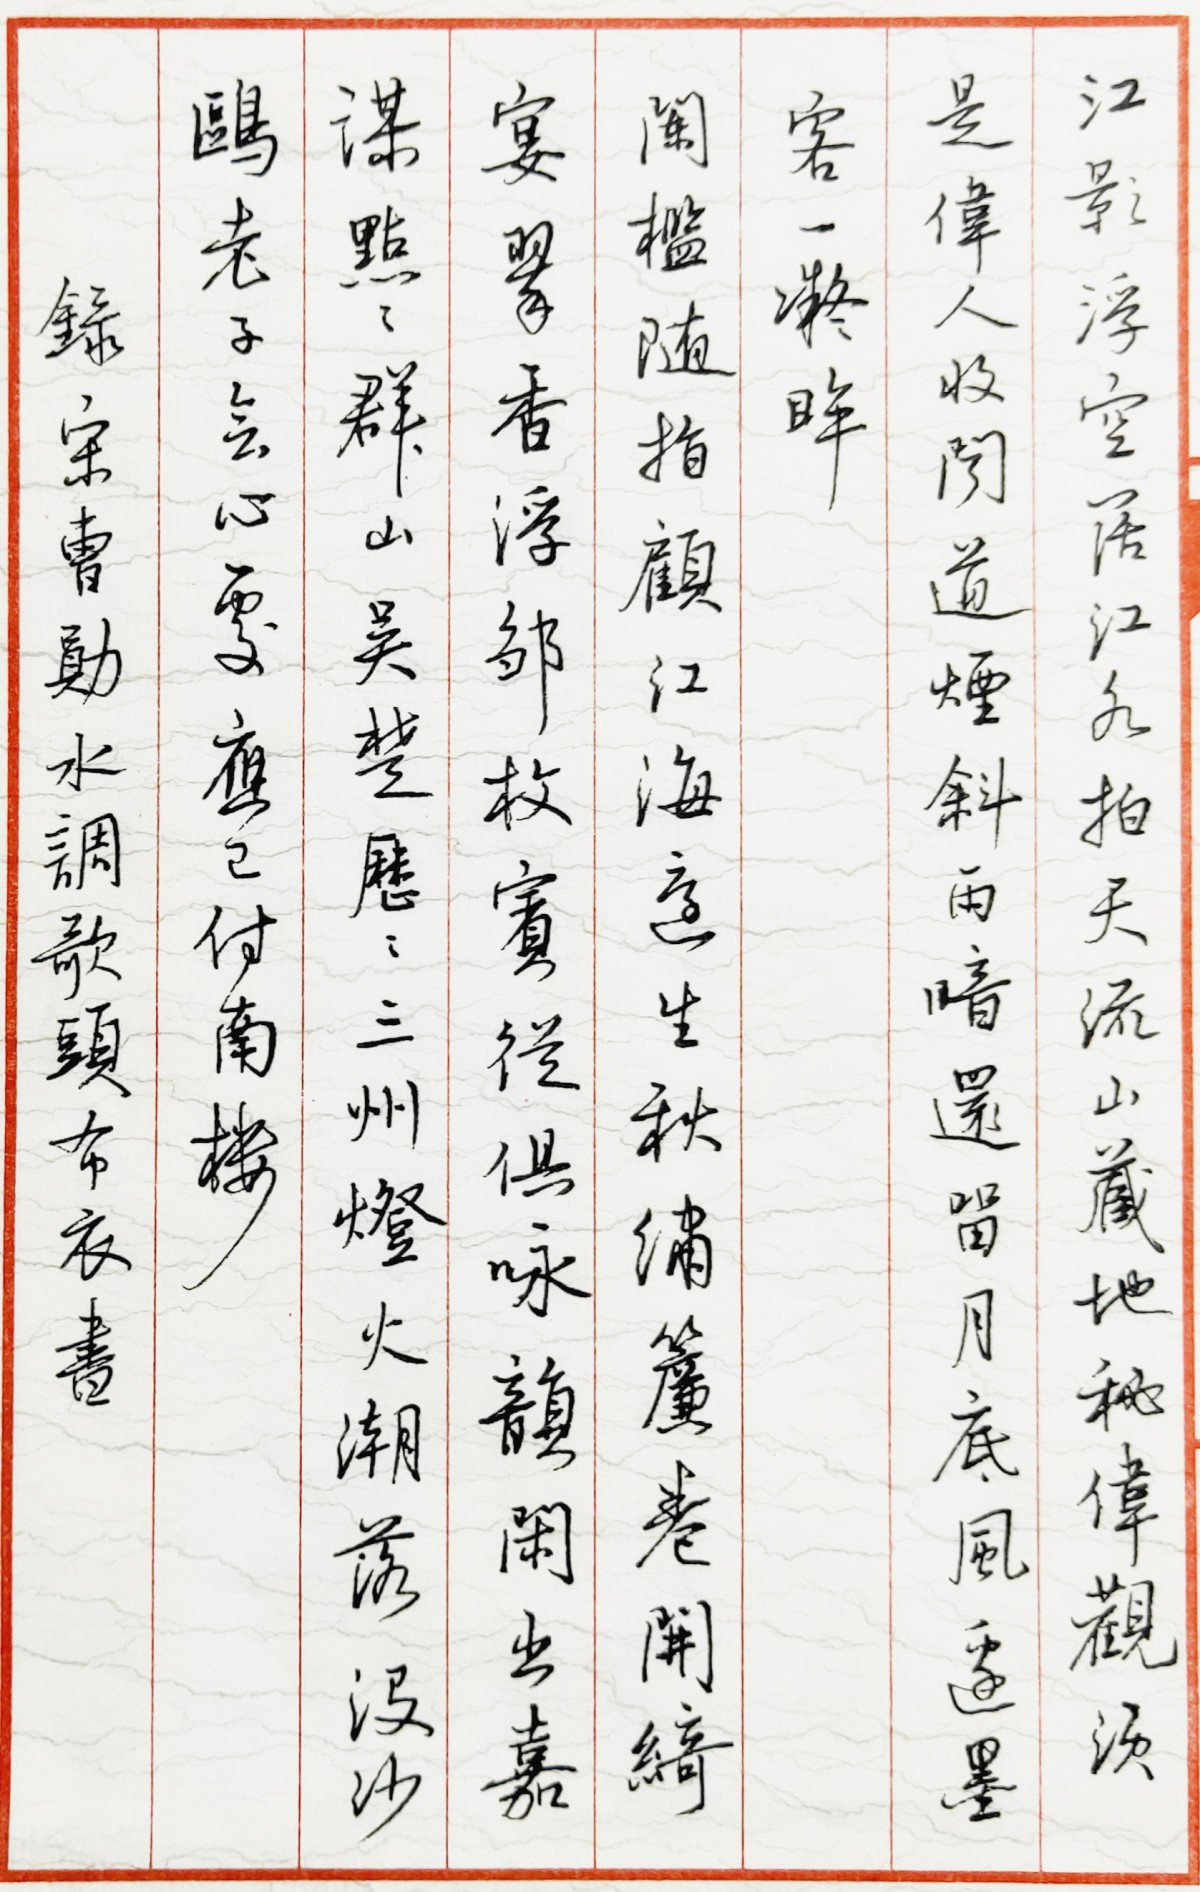 江影浮空闊江水拍天流山藏地秘偉觀須
是偉人收聞道煙斜雨暗還留月底風邃墨
客一凝眸
闌檻随指顧江海意生秋繡簾卷開綺
宴翠香浮鄒枚賓從俱咏韻閑出嘉
謀點〻群山吳楚歷〻三州燈火潮落没沙
鷗老子会心處應已付南楼
錄宋曹勛水調歌頭布衣書